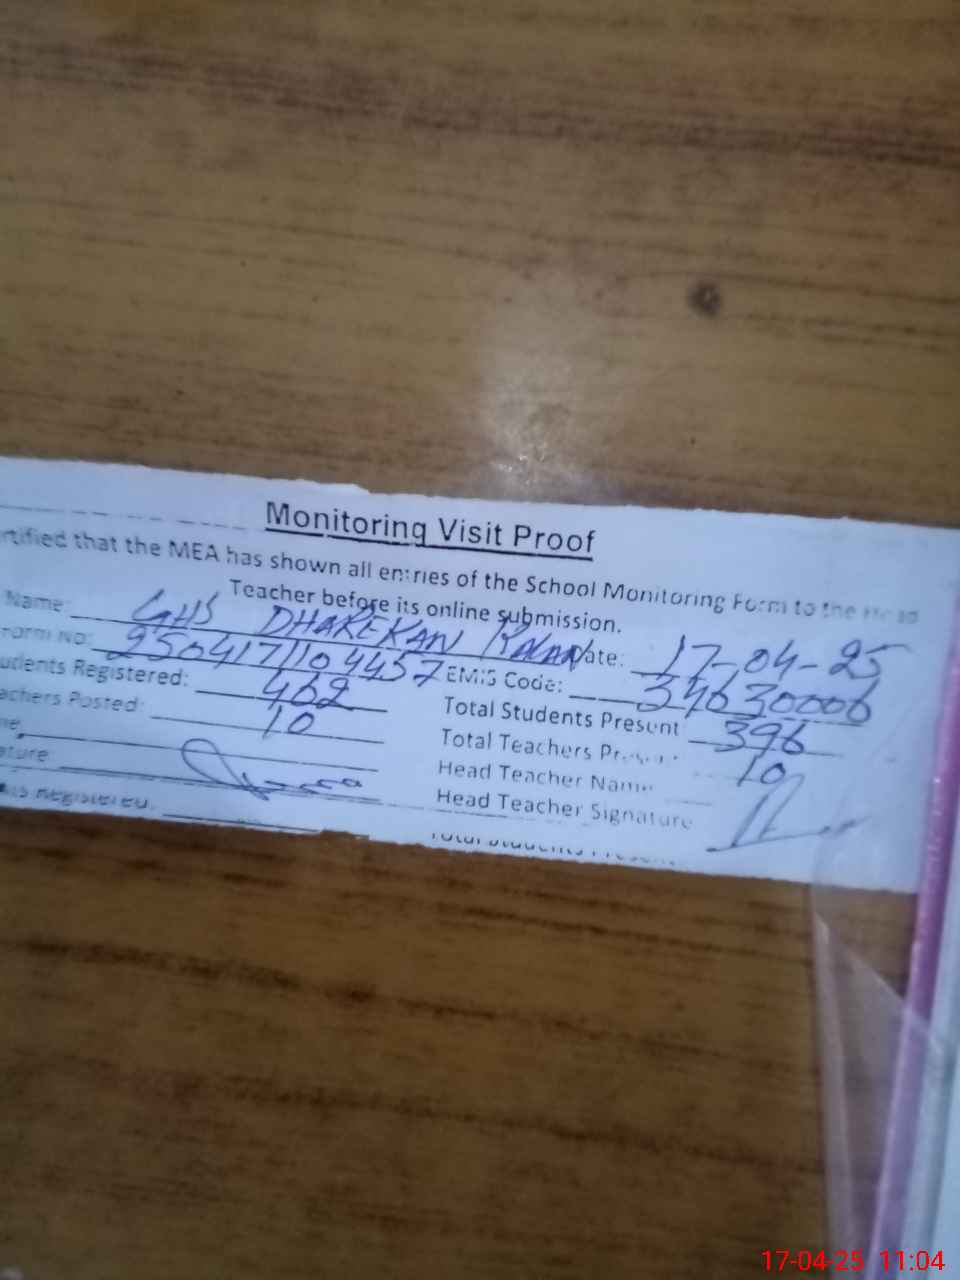 Monitoring Visit Proof
rtified that the MEA has shown all entries of the School Monitoring Form to the Head
Teacher before its online submission.
Name: GHS DHAREKAN ate: 17-04-25
Form No: 2504171104457 EMIS Code: 34630006
udents Registered: 462 Total Students Present 396
achers Posted: 10 Total Teachers Pres 10
me Head Teacher Name
ature Head Teacher Signature
ts Registered: Total Students Present
17-04-25 11:04